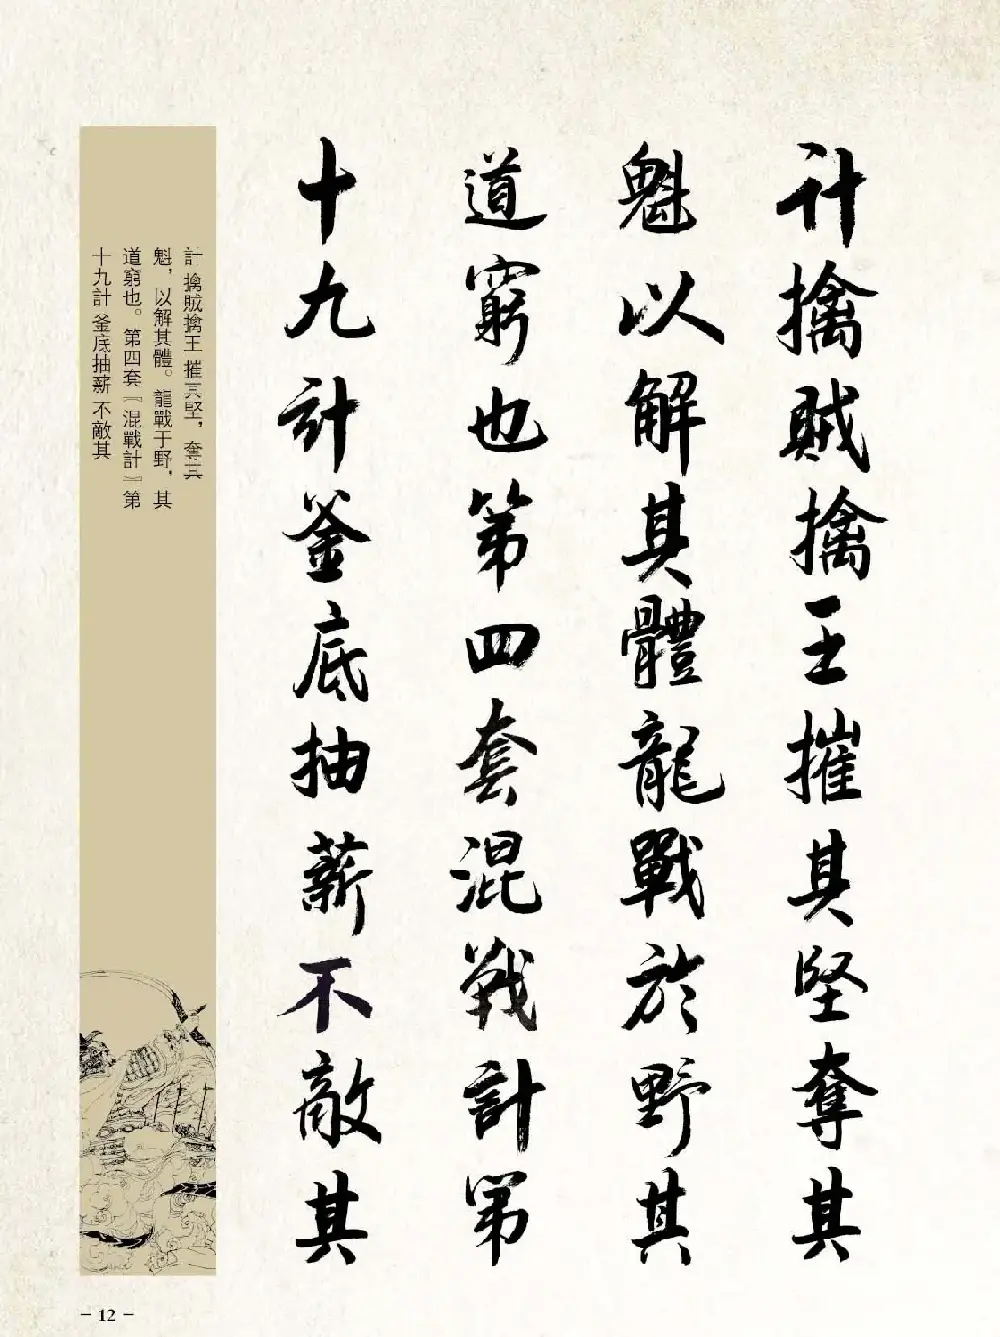 计擒贼擒王摧其坚夺其
魁以解其體龍戰於野其
道窮也第四套混战計第
十九計釜底抽薪不敵其
計 擒賊擒王 摧其堅，奪其
魁，以解其體。龍戰于野，其
道窮也。第四套『混戰計』第
十九計 釜底抽薪 不敵其
- 12 -